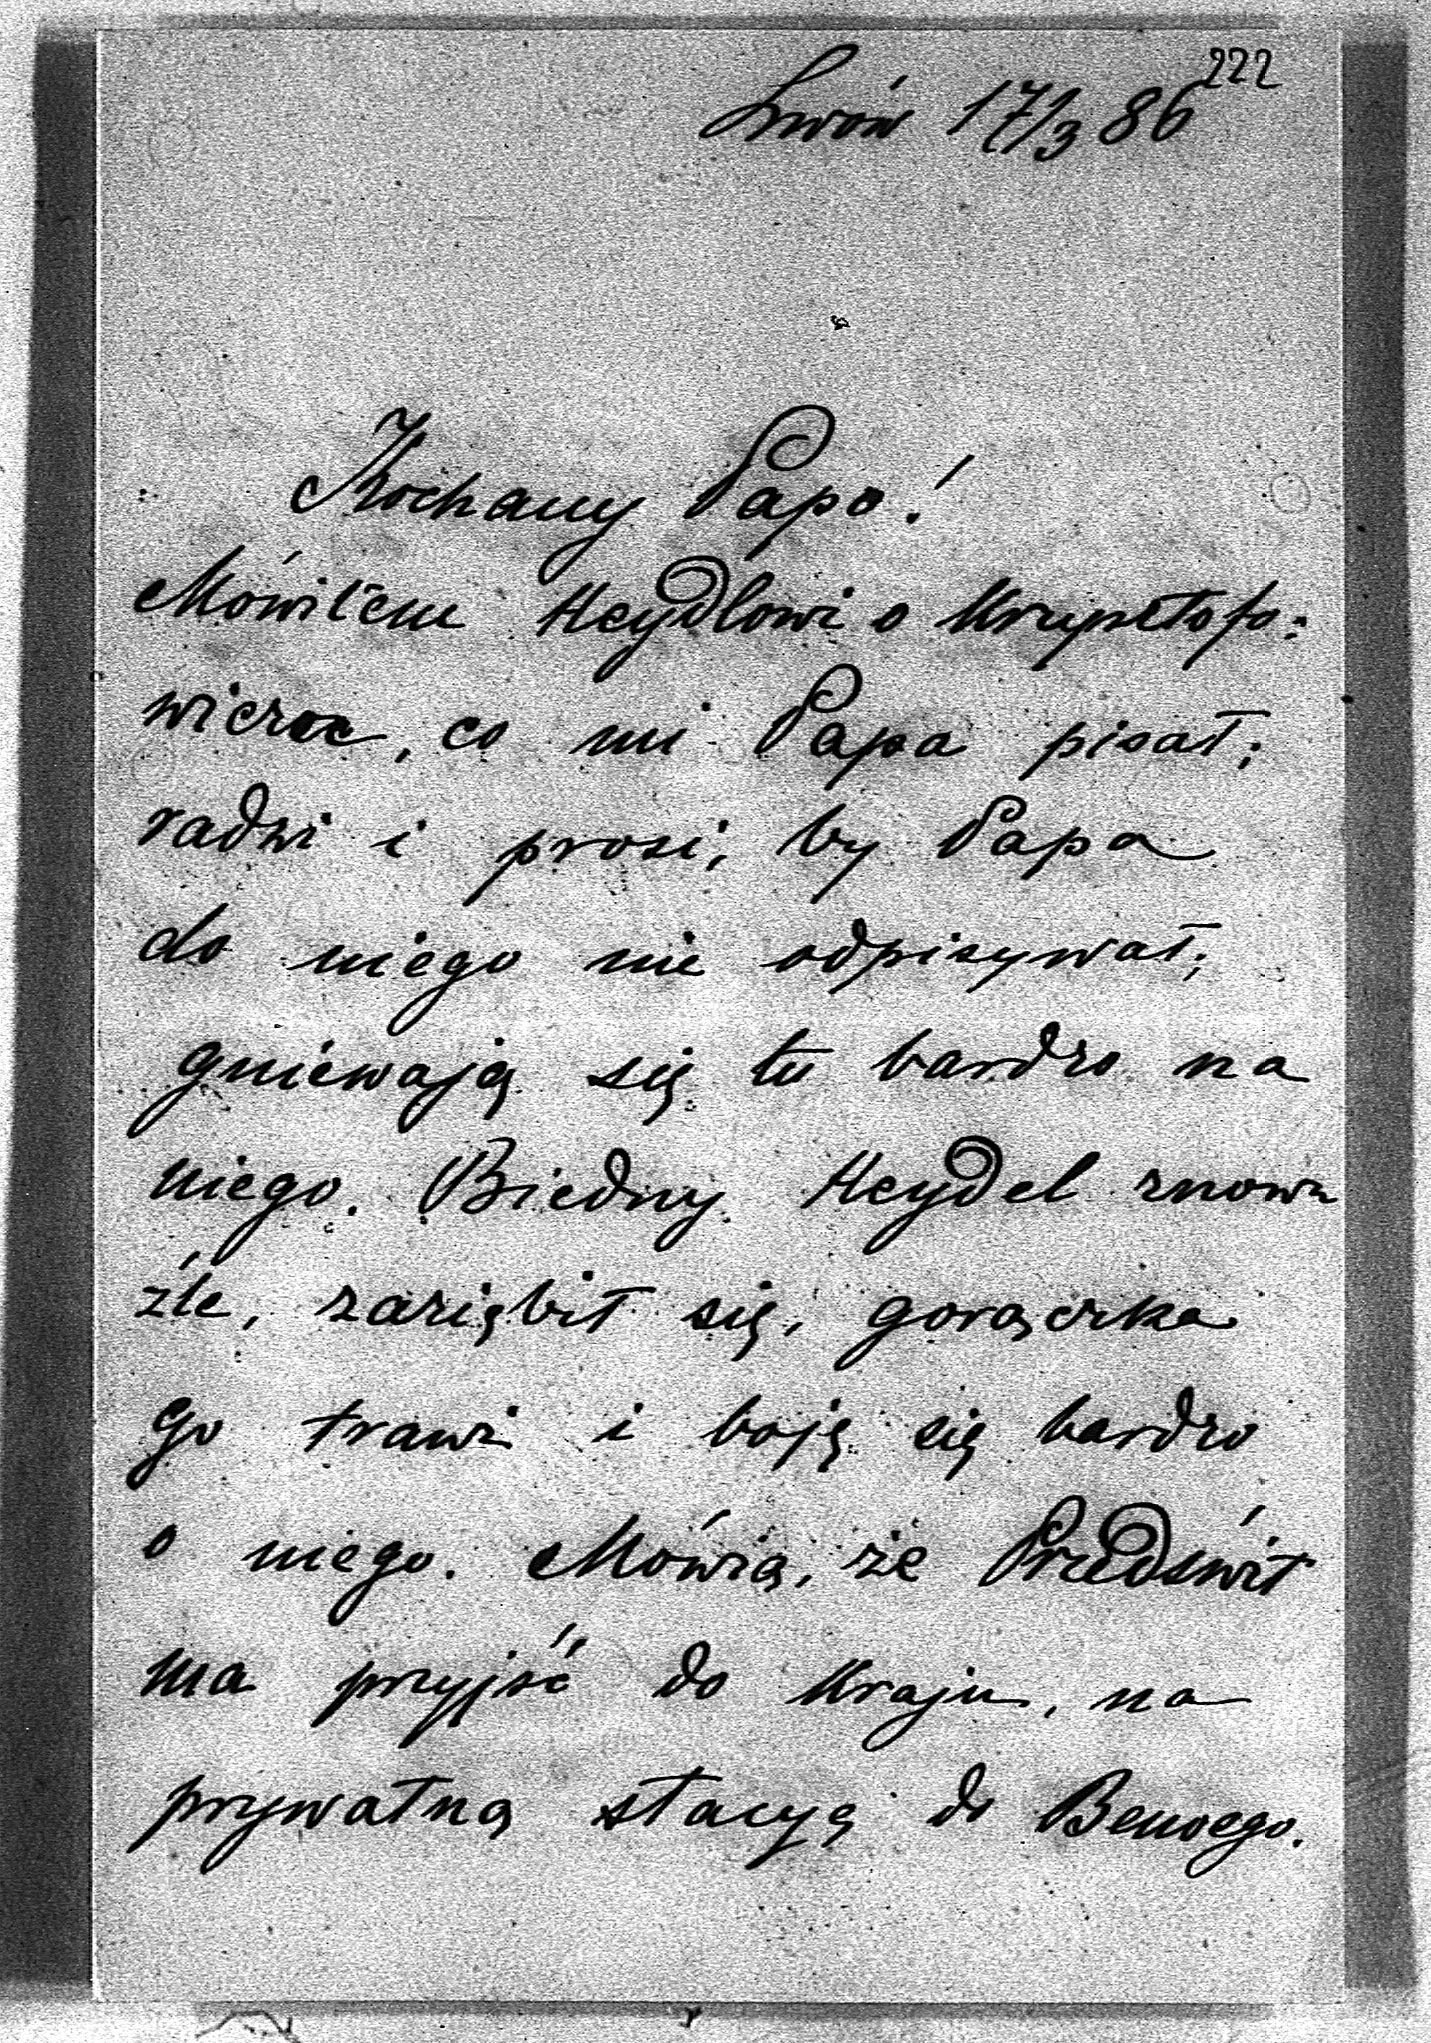 222
Lwów 17/3 86
Kochany Papo!
Mówiłem Heydlowi o Krzysztofo:
wiczoc, co mi Papa pisał;
radzi i prosi, by Papa
do niego nie odpisywał;
gniewają się tu bardzo na
niego. Biedny Heydel znowu
źle, zaziębił się, gorączka
go trawi i boję się bardzo
o niego. Mówią, że Przedświt
ma przyjść do Kraju, na
prywatną stacyą do